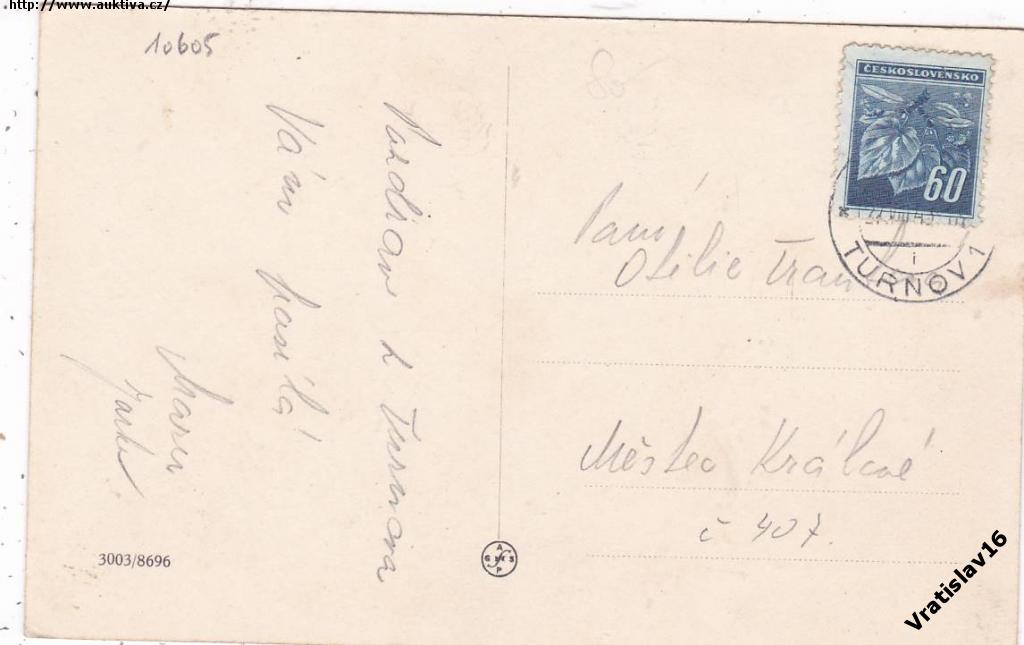 http://www.auktiva.cz/
10605
Pozdrav z Turnova
Vám posílá
3003/8696
ČESKOSLOVENSKO
60
TURNOV 1
Paní
Otilie
Městec Králové
č 407.
Vratislav16